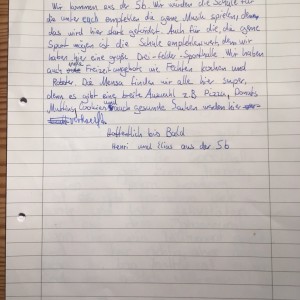 Wir kommen aus der 5b. Wir würden die Schule für
die unter euch empfehlen die gerne Musik spielen, denn
das wird hier stark gefördert. Auch für die, die gerne
Sport mögen ist die Schule empfehlenswert, denn wir
haben hier eine große Drei-felder-Sporthalle. Wir haben
auch Freizeitangebote wie Fechten kochen und
Roboter. Die Mensa finden wir alle hier super,
denn es gibt eine breite Auswahl z.B. Pizza, Donuts
Muffins, Cookies und auch gesunde Sachen werden hier
verkauft.
Hoffentlich bis Bald
Henri und Ilias aus der 5b